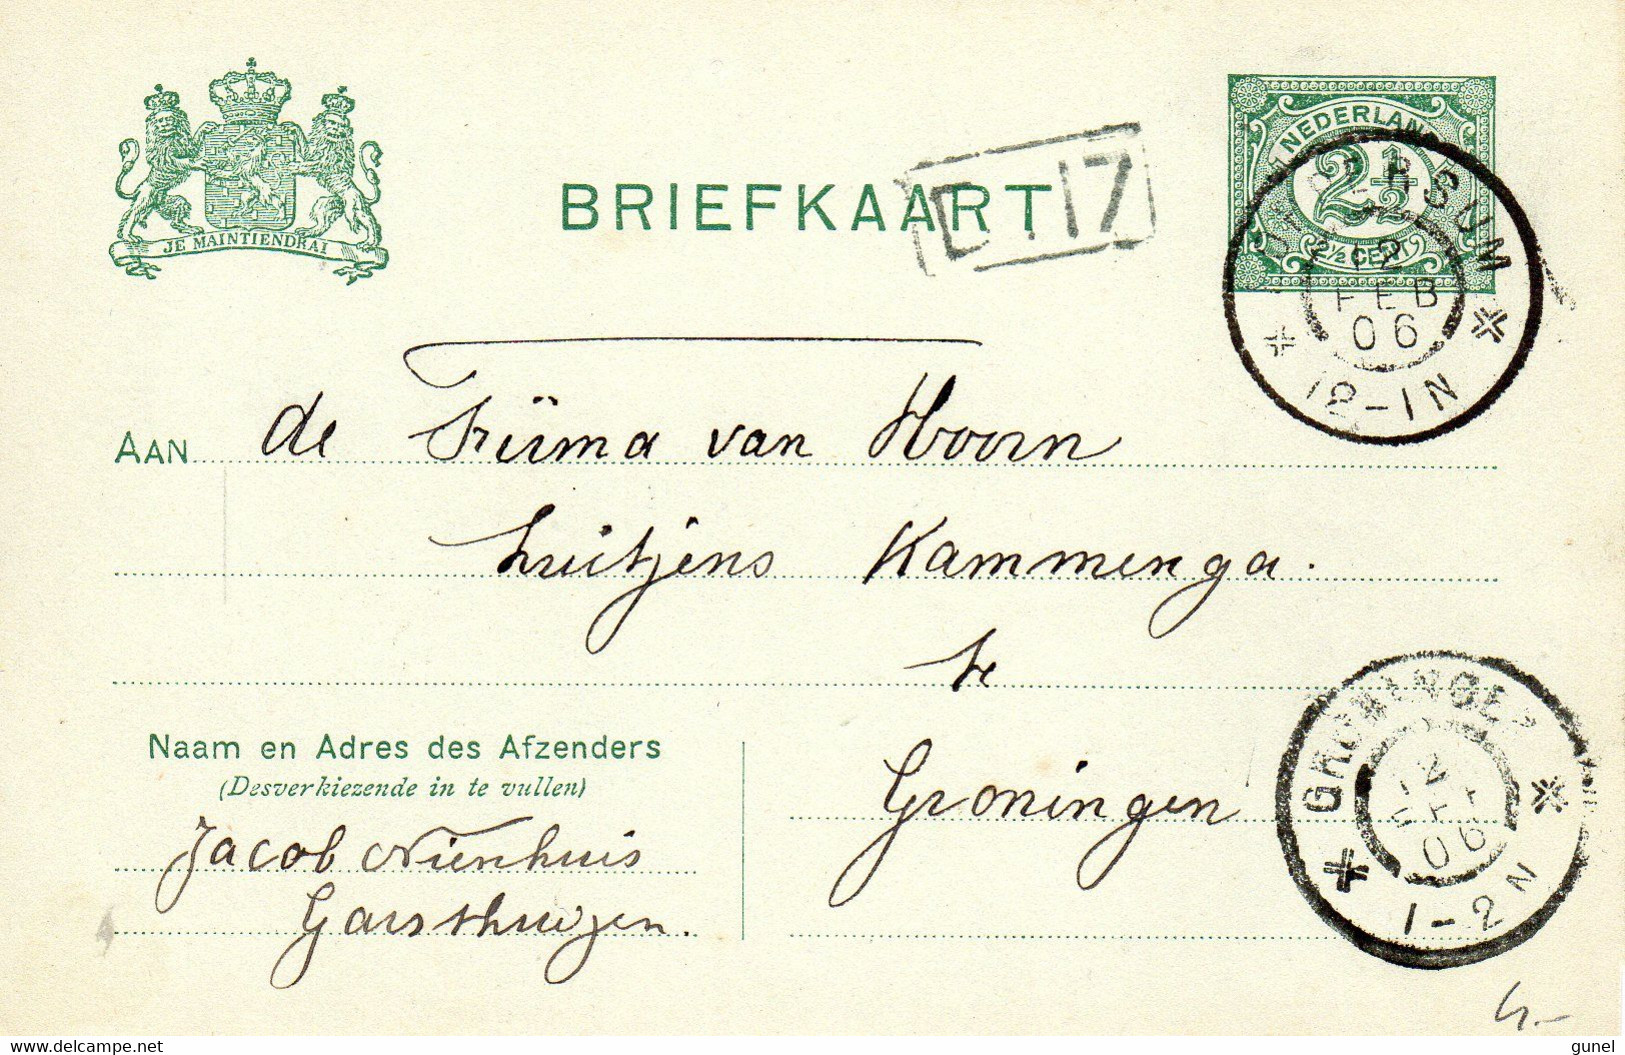 JE MAINTIENDRAI
BRIEFKAART
D.17
NEDERLAND
2½
2½ CENT
12
FEB
06
12-1N
AAN de Firma van Hoorn
Luitjens Kammenga.
te
Groningen
Naam en Adres des Afzenders
(Desverkiezende in te vullen)
Jacob Nienhuis
Garsthuizen.
GRONINGEN
06
1-2N
4.-
© www.delcampe.net
gunel